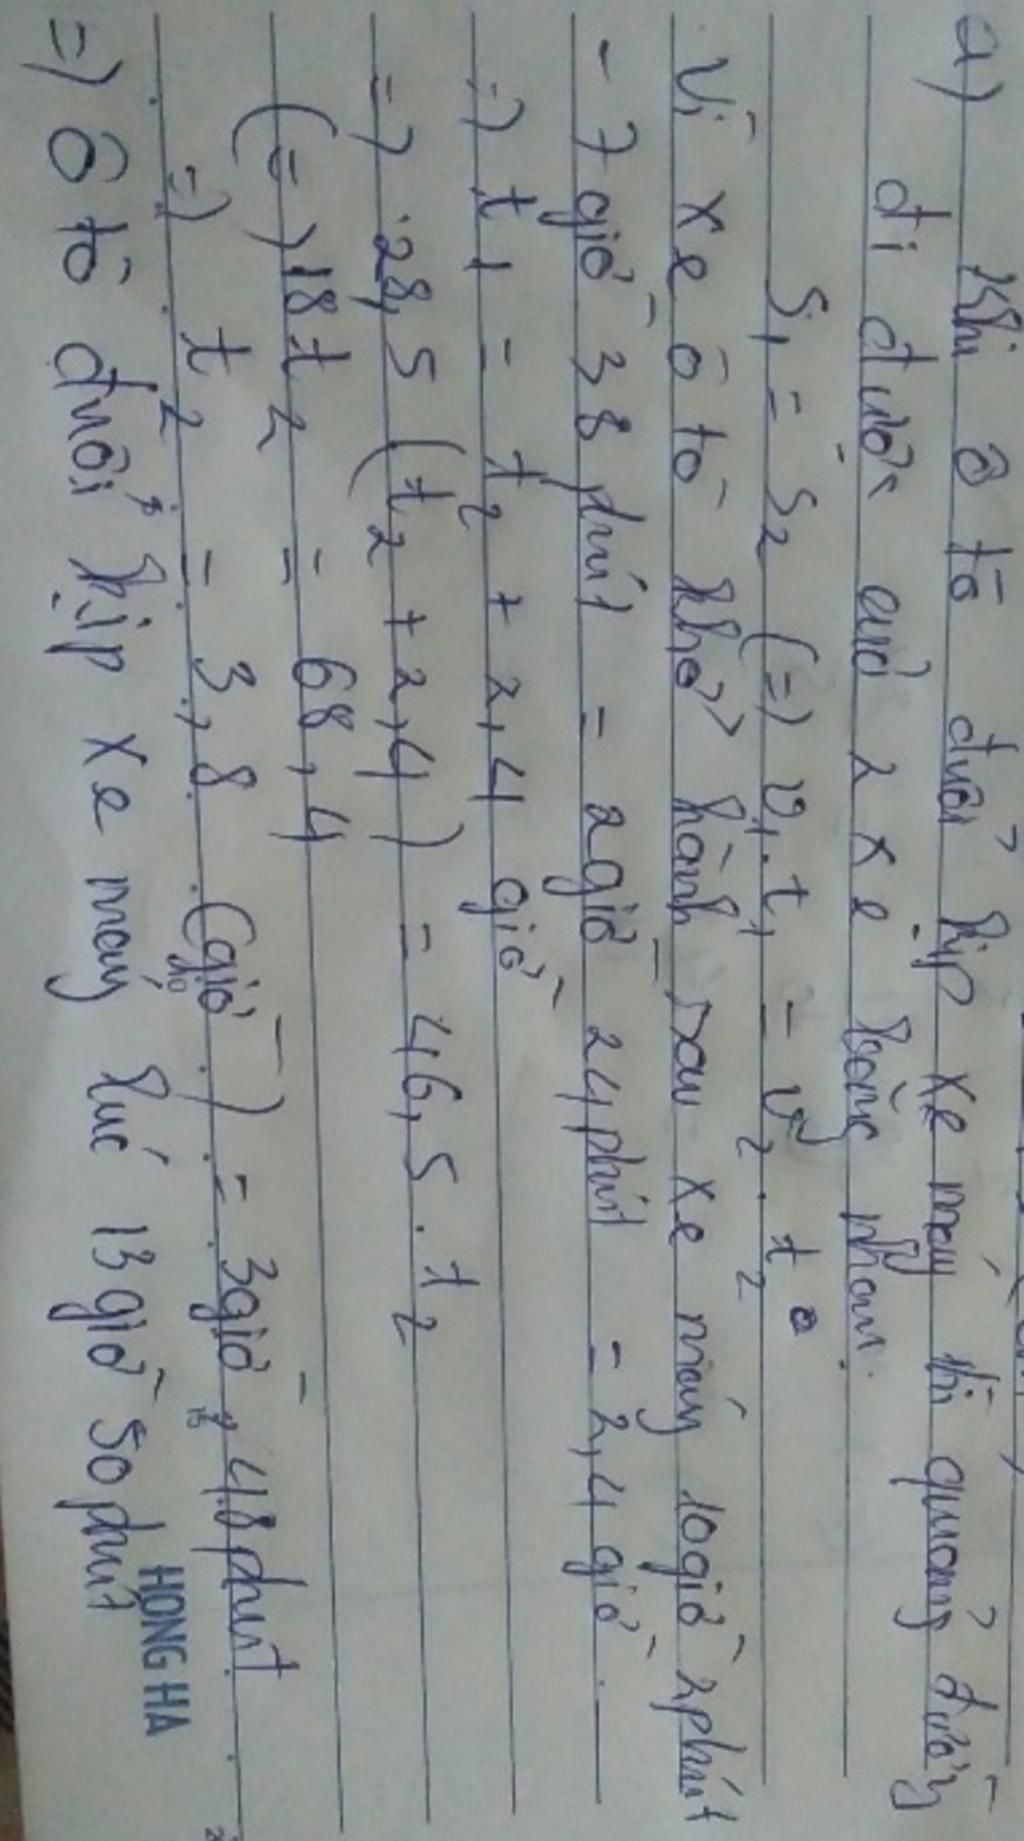 a) Khi ô tô đuổi kịp xe máy thì quãng đường
đi được của 2 xe bằng nhau.
S₁ = S₂ (=) v₁.t₁ = v₂.t₂
Vì xe ô tô khởi hành sau xe máy 10giờ 2phút
- 7giờ 38phút = 2giờ 24phút = 2,4giờ.
=) t₁ = t₂ + 2,4 giờ
=) 28,5 (t₂ + 2,4) = 46,5.t₂
(=) 18t₂ = 68,4
=) t₂ = 3,8 (giờ) = 3giờ 48phút
=) Ô tô đuổi kịp xe máy lúc 13giờ 50phút
HONG HA